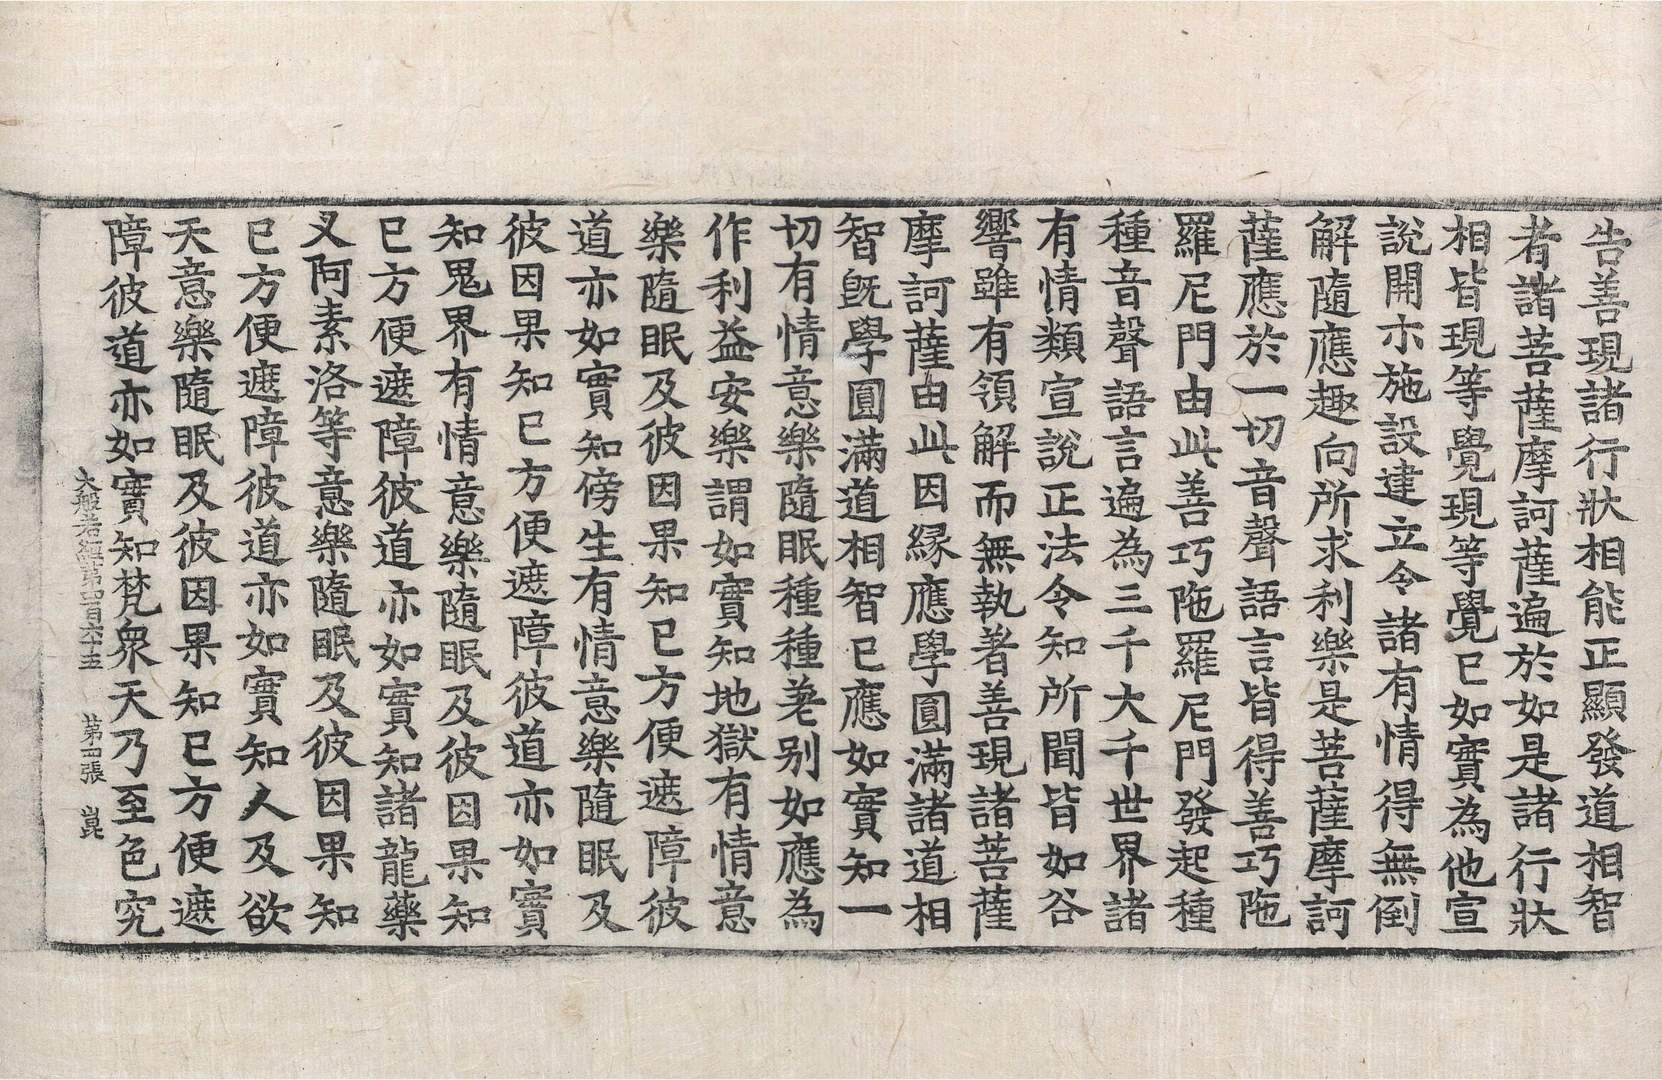 告善現諸行狀相能正顯發道相智
者諸菩薩摩訶薩遍於如是諸行狀
相皆現等覺現等覺已如實為他宣
說開示施設建立令諸有情得無倒
解隨應趣向所求利樂是菩薩摩訶
薩應於一切音聲語言皆得善巧陁
羅尼門由此善巧陁羅尼門發起種
種音聲語言遍為三千大千世界諸
有情類宣說正法令知所聞皆如谷
響雖有領解而無執著善現諸菩薩
摩訶薩由此因緣應學圓滿諸道相
智旣學圓滿道相智已應如實知一
切有情意樂隨眠種種差別如應為
作利益安樂謂如實知地獄有情意
樂隨眠及彼因果知已方便遮障彼
道亦如實知傍生有情意樂隨眠及
彼因果知已方便遮障彼道亦如實
知鬼界有情意樂隨眠及彼因果知
已方便遮障彼道亦如實知諸龍藥
叉阿素洛等意樂隨眠及彼因果知
已方便遮障彼道亦如實知人及欲
天意樂隨眠及彼因果知已方便遮
障彼道亦如實知梵衆天乃至色究
大般若經第四百六十五 第四張 崑